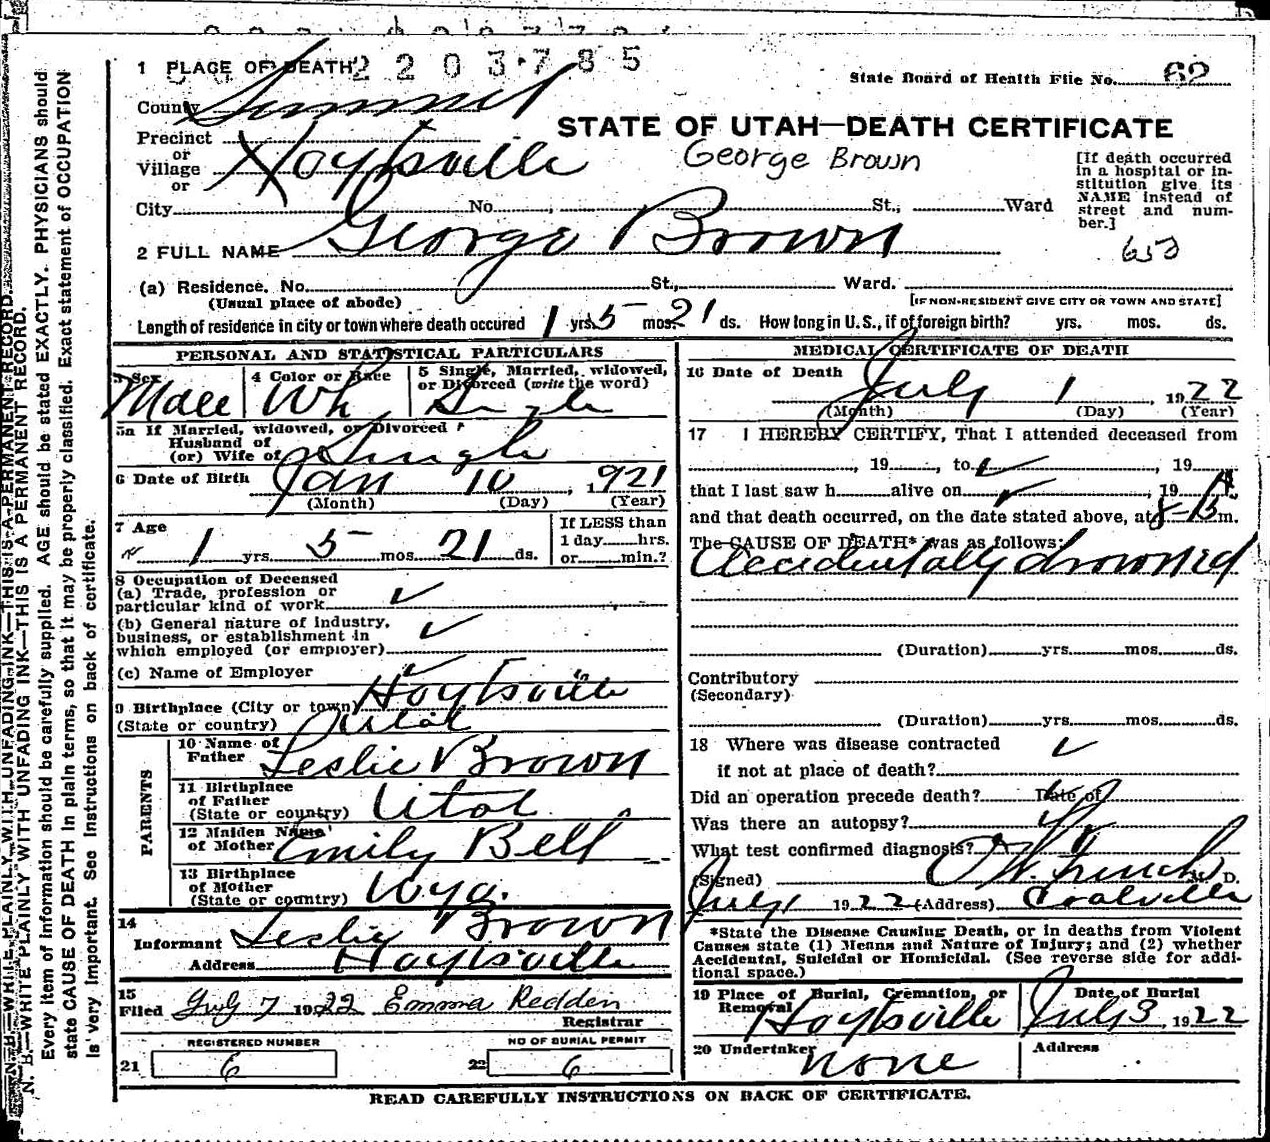 2203785
1 PLACE OF DEATH
State Board of Health File No. 62
County Summit
STATE OF UTAH—DEATH CERTIFICATE
Precinct
or
Village Hoytsville
or
George Brown
[If death occurred
in a hospital or in-
stitution give its
NAME instead of
street and num-
ber.]
City No. St., Ward
2 FULL NAME George Brown
650
(a) Residence. No. St., Ward.
(Usual place of abode)
[IF NON-RESIDENT GIVE CITY OR TOWN AND STATE]
Length of residence in city or town where death occured 1 yrs. 5 mos. 21 ds. How long in U.S., if of foreign birth? yrs. mos. ds.
PERSONAL AND STATISTICAL PARTICULARS
3 Sex
Male
4 Color or Race
Wh
5 Single, Married, widowed,
or Divorced (write the word)
Single
5a If Married, widowed, or Divorced
Husband of
(or) Wife of Single
6 Date of Birth Jan 10, 1921
(Month) (Day) (Year)
7 Age
1 yrs. 5 mos. 21 ds.
If LESS than
1 day hrs.
or min.?
8 Occupation of Deceased
(a) Trade, profession or
particular kind of work ✓
(b) General nature of industry,
business, or establishment in
which employed (or employer) ✓
(c) Name of Employer ✓
9 Birthplace (City or town) Hoytsville
(State or country) Utah
PARENTS
10 Name of
Father Leslie Brown
11 Birthplace
of Father
(State or country) Utah
12 Maiden Name
of Mother Emily Bell
13 Birthplace
of Mother
(State or country) Wyo.
14
Informant Leslie Brown
Address Hoytsville
15
Filed July 7 1922 Emma Redden
Registrar
REGISTERED NUMBER
21 6
NO OF BURIAL PERMIT
22 6
MEDICAL CERTIFICATE OF DEATH
16 Date of Death
July 1, 1922
(Month) (Day) (Year)
17 I HEREBY CERTIFY, That I attended deceased from
, 19 , to ✓ , 19
that I last saw h alive on ✓ , 19
and that death occurred, on the date stated above, at 8-15 A m.
The CAUSE OF DEATH* was as follows:
Accidentally drowned
(Duration) yrs. mos. ds.
Contributory
(Secondary)
(Duration) yrs. mos. ds.
18 Where was disease contracted ✓
if not at place of death?
Did an operation precede death? Date of
Was there an autopsy?
What test confirmed diagnosis?
(Signed) French M. D.
July 1 1922 (Address) Coalville
*State the Disease Causing Death, or in deaths from Violent
Causes state (1) Means and Nature of Injury; and (2) whether
Accidental, Suicidal or Homicidal. (See reverse side for addi-
tional space.)
19 Place of Burial, Cremation, or
Removal Hoytsville
Date of Burial
July 3, 1922
20 Undertaker none
Address
READ CAREFULLY INSTRUCTIONS ON BACK OF CERTIFICATE.
N. B.—WRITE PLAINLY WITH UNFADING INK—THIS IS A PERMANENT RECORD.
N. B.—WRITE PLAINLY WITH UNFADING INK—THIS IS A PERMANENT RECORD.
Every item of information should be carefully supplied. AGE should be stated EXACTLY. PHYSICIANS should
state CAUSE OF DEATH in plain terms, so that it may be properly classified. Exact statement of OCCUPATION
is very important. See instructions on back of certificate.